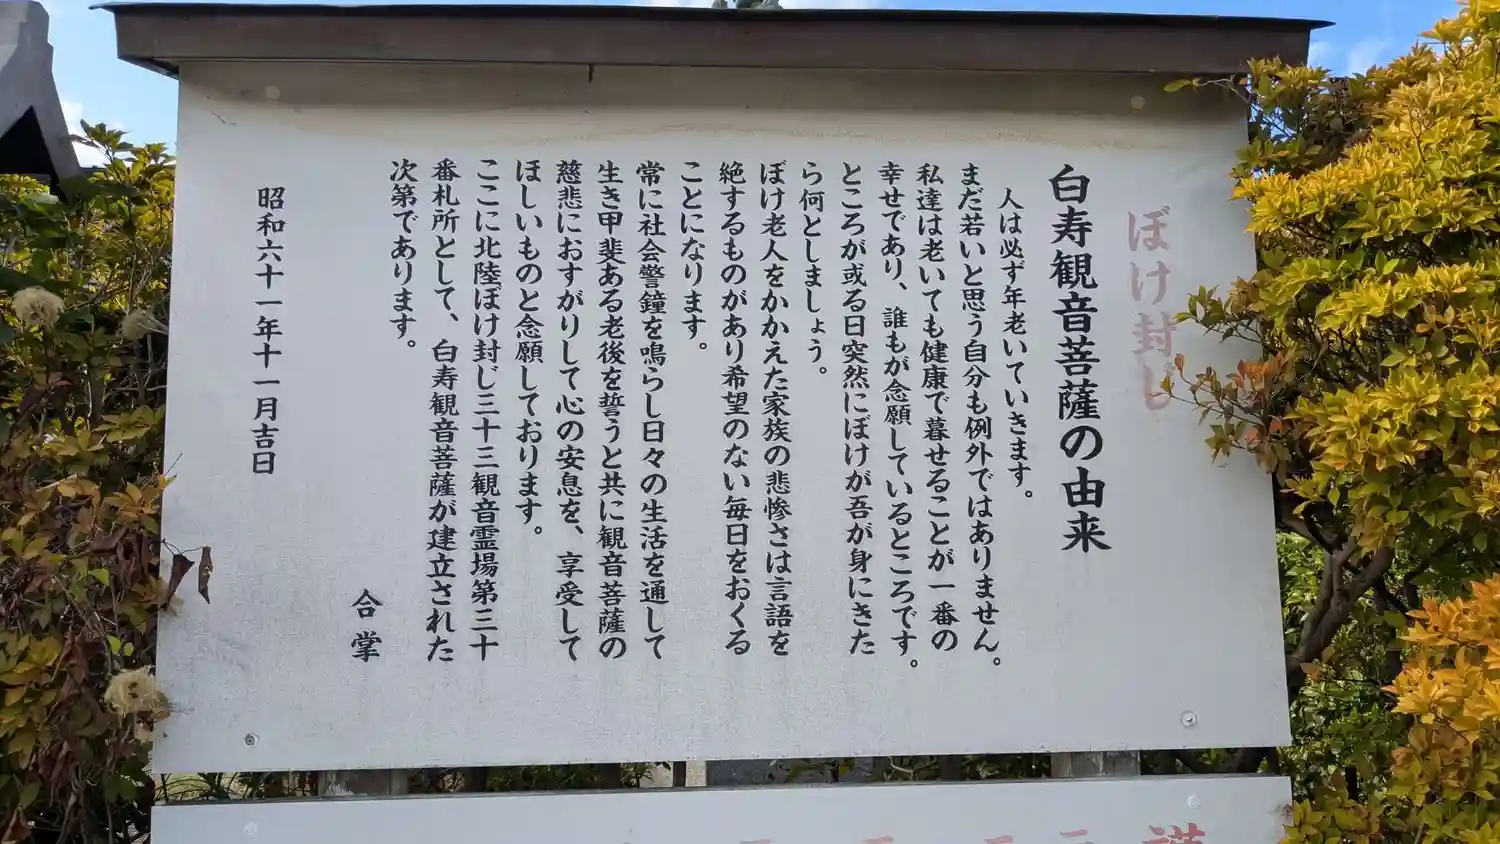 ぼけ封じ
白寿観音菩薩の由来
人は必ず年老いていきます。
まだ若いと思う自分も例外ではありません。
私達は老いても健康で暮せることが一番の
幸せであり、誰もが念願しているところです。
ところが或る日突然にぼけが吾が身にきた
ら何としましょう。
ぼけ老人をかかえた家族の悲惨さは言語を
絶するものがあり希望のない毎日をおくる
ことになります。
常に社会警鐘を鳴らし日々の生活を通して
生き甲斐ある老後を誓うと共に観音菩薩の
慈悲におすがりして心の安息を、享受して
ほしいものと念願しております。
ここに北陸ぼけ封じ三十三観音霊場第三十
番札所として、白寿観音菩薩が建立された
次第であります。
合掌
昭和六十一年十一月吉日